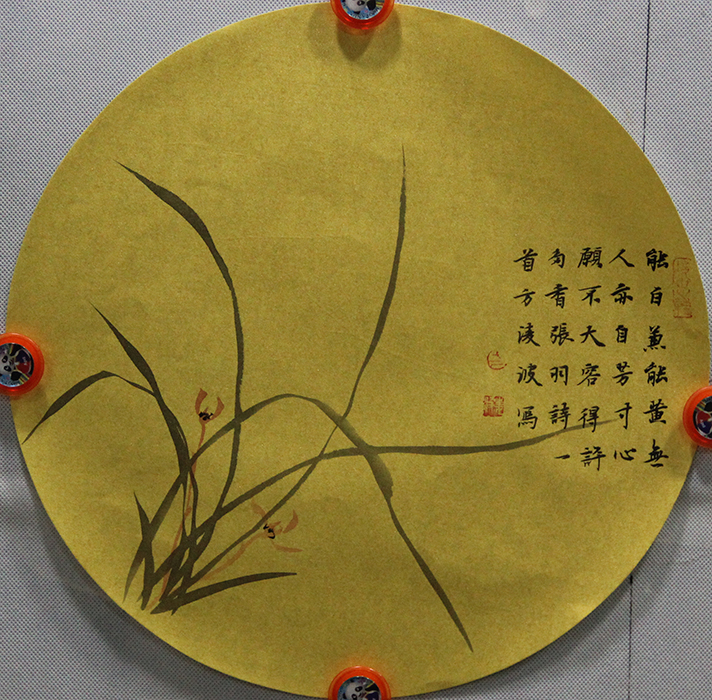 能白兼能黄無
人亦自芳寸心
願不大容得許
多香張羽詩一
首方淩波寫